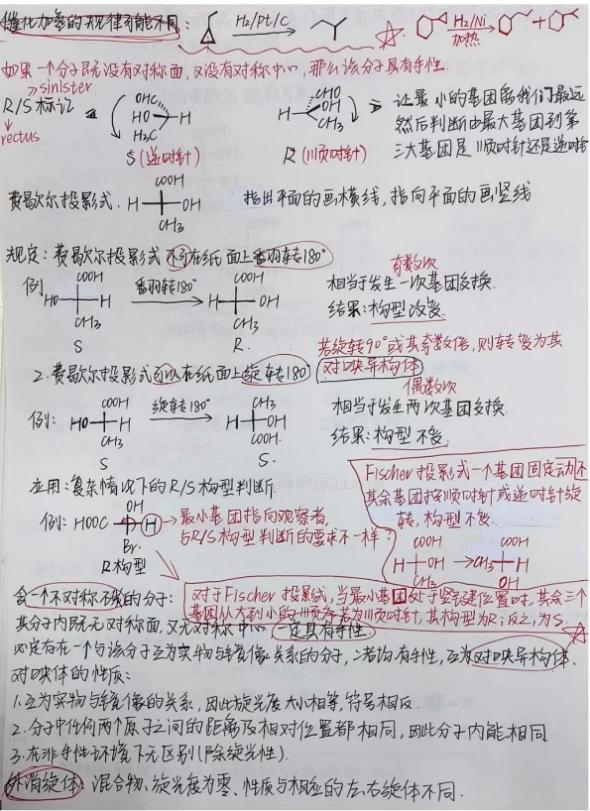 催化加氢的规律有所不同: H2/Pt/C H2/Ni 加热 +
如果一个分子既没有对称面,又没有对称中心,那么该分子具有手性.
sinister
R/S标记
rectus
OHC HO H H3C
S(逆时针)
CHO OH H CH3
R(顺时针)
让最小的基团离我们最远
然后判断由最大基团到第
三大基团是顺时针还是逆时针
费歇尔投影式. COOH H OH CH3
指出平面的画横线,指向平面的画竖线
规定:费歇尔投影式不可在纸面上翻转180°
例 COOH HO H CH3 S
翻转180°
COOH H OH CH3 R.
奇数次
相当于发生一次基团交换.
结果:构型改变.
若旋转90°或其奇数倍,则转变为其
对映异构体
2.费歇尔投影式可以在纸面上旋转180°
例: COOH HO H CH3 S
旋转180°
CH3 H OH COOH. S.
偶数次
相当于发生两次基团交换.
结果:构型不变.
应用:复杂情况下的R/S构型判断.
例: HOOC OH H Br.
R构型
最小基团指向观察者,
与R/S构型判断的要求不一样?
Fischer投影式一个基团固定不动
其余基团按顺时针或逆时针旋
转,构型不变.
COOH H OH CH3 → COOH CH3 H OH
对于Fischer投影式,当最小基团处于竖键位置时,其余三个
基团从大到小的顺序若为顺时针,其构型为R;反之,为S.
含一个不对称碳的分子:
其分子内既无对称面,又无对称中心,一定具有手性
必定存在一个与该分子互为实物与镜像关系的分子,二者均有手性,互为对映异构体.
对映体的性质:
1.互为实物与镜像的关系,因此旋光度大小相等,符号相反.
2.分子中任何两个原子之间的距离及相对位置都相同,因此分子内能相同
3.在非手性环境下无区别(除旋光性).
外消旋体:混合物、旋光度为零、性质与相应的左、右旋体不同.